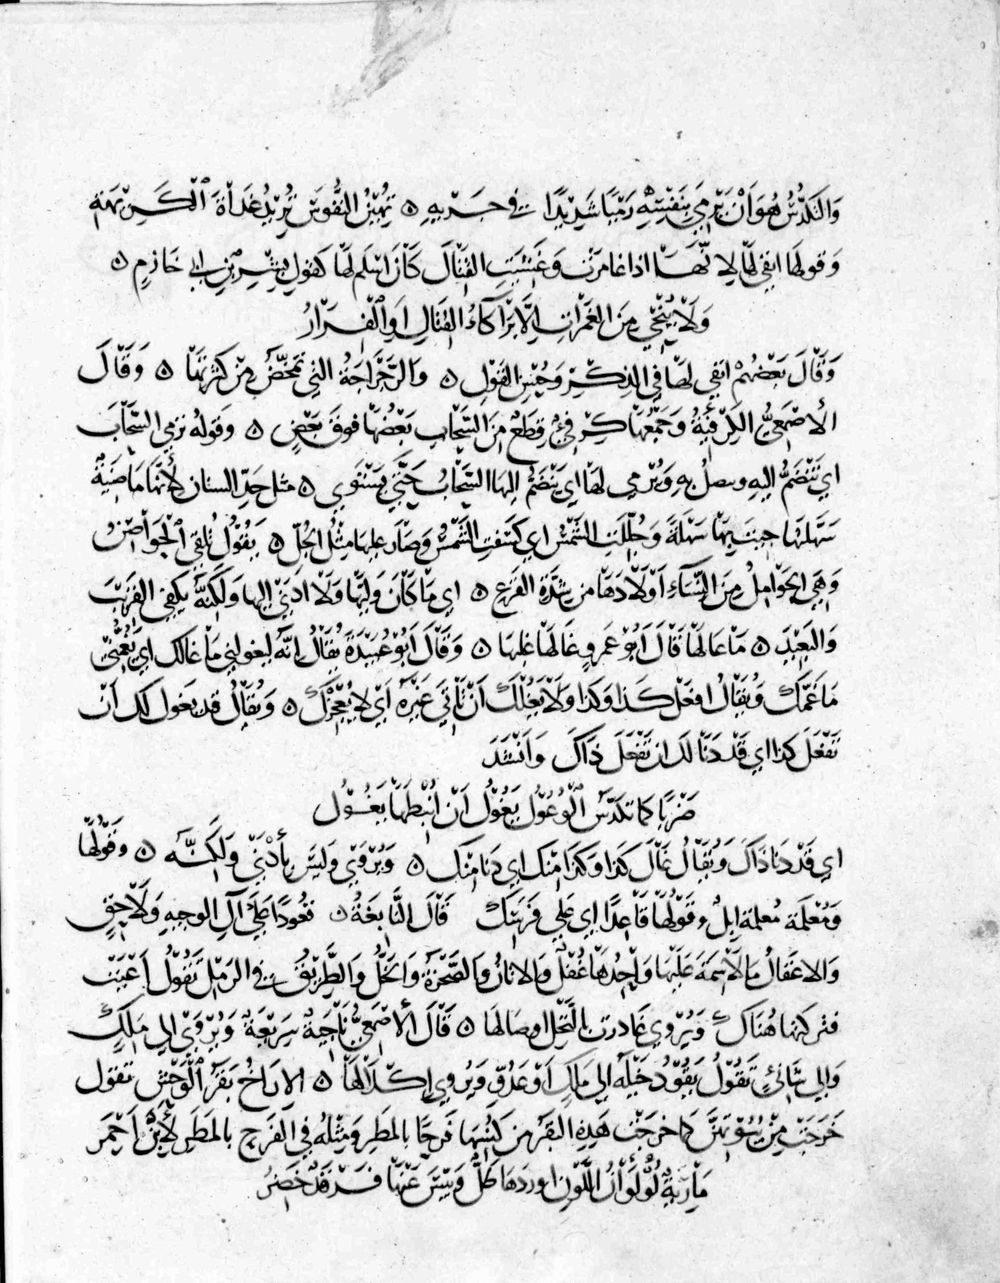 وَالتَكَدُّسُ هُوَ اَنْ يَرْمِيَ بِنَفْسِهِ رَمْيًا شَدِيدًا فِي جَرْيِهِ ٥ تُهِينُ النُّفُوسَ تُرِيدُ غَدَاةَ الْكَرِيهَةِ
وَقولها ابقى لها لِانَّهَا اذا غامرت وَغَشِيَتِ القِتَالَ كَانَ اسْلم لَهَا كقول بِشْرِ بْنِ ابي خَازِمٍ ٥
وَلَا يُنْجِي مِنَ الغَمَرَاتِ اِلَّا بَرَاكَاءُ القِتَالِ اَوِ الْفِرَارُ
وَقَالَ بَعْضُهُمْ ابقى لهَا فِي الذِكْرِ وَحُسْنِ القَوْلِ ٥ وَالرَّجْرَاجَةُ التِي تَمَخَّضُ مِنْ كَثْرَتِهَا ٥ وَقَالَ
الأَصْمَعِيُّ الكِرْفِئَةُ وَجَمْعُهَا كِرْفِئٌ قِطَعٌ مِنَ السَّحَابِ بَعْضُهَا فَوقَ بَعْضٍ ٥ وَقولهُ تَرْمِي السَّحَابَ
اي تَنْضَمُّ اليهِ وتتصلُ بِهِ وَيُرْمى لَهَا اي يَنْضَمُّ اليها السَّحَابُ حَتَّى يَسْتَوِي ٥ مثل حَدِّ السنان لأَنَّها مَاضِيَةٌ
سَهَّلَتْهَا جِئْتَ بِهَا سَهْلَةً وَجُلِّلَتِ الشَّمْسُ اي كُسِفَتِ الشَّمْسُ وَصَارَ عليها مِثْلُ الجُلِّ ٥ يَقُولُ تُلْقِي الْحَوَاصِنُ
وَهِيَ الحَوَامِلُ مِنَ النِّسَاءِ اَوْلَادَهَا من شِدَّةِ الفَزَعِ ٥ اي مَا كَانَ وَلِيَّهَا وَلَا ادْنَى اليها وَلَكِنَّهُ يَكْفِي القَرِيبَ
وَالبَعِيدَ ٥ مَا عَالَهَا قَالَ اَبُو عَمْرٍو عَالَهَا غلبهَا ٥ وَقَالَ اَبُوْ عُبَيْدَةَ يُقَالُ اِنَّهُ ليعولني مَا عَالَكَ اي يَغُمُّنِي
مَا غَمَّكَ وَيُقَالُ افعَلْ كَذَا وَكَذَا وَلَا يَعُلْكَ اَنْ تَأْتِيَ غَيْرَهُ اَيْ لَا يُعْجِزْكَ ٥ وَيُقَالُ قد يَعُولُ لكَ اَنْ
تَفْعَلَ كذا اي قَدْ دَنَا لكَ ان تَفْعَلَ ذَاكَ وَاَنْشَدَ
ضَرْبًا كمَا تَكَدَّسَ الْوُعُوْلُ يَعُوْلُ اَنْ اُنْبِطَهَا يَعُوْلُ
اي قَدْ دنَا ذَاكَ وَيُقَالُ عَالَ كَذَا وَكَذَا مِنْكَ اي دَنَا مِنْكَ ٥ وَيُرْوَى وَلَيْسَ بِأَدْنَى وَلَكِنَّهُ ٥ وَقَوْلُهَا
وَمُعْلَمَةٍ مُعلمة اِبِلٌ وقَوْلُهَا قَاعِدًا اي عَلى فَرَسِكَ قَالَ النَّابِغَةُ ٥ قعُودًا عَلَى آلِ الوجيهِ وَلَاحِقٍ
وَالاغفَالُ مَا لَاسِمَةَ عَلَيْهَا وَاحِدُهَا غُفْلٌ وَالاتانُ الصَّخْرَةُ وَالخَلُّ الطَّرِيْقُ فِي الرَمْلِ تَقُوْلُ أَعْيَت
فتركتها هُنَاكَ وَيُرْوى غادرت بالخل اوصَالَهَا ٥ قَالَ الأَصْمَعِيُّ نَاجِيَةٌ سَرِيْعَةٌ وَيُرْوَى اِلى مَلِكٍ
وَاِلى شَانِئٍ تَقُوْلُ يَقُوْدُ خَيْلَهُ اِلى مَلِكٍ اَوْ عَدُوٍّ وَيُروى اِكْلَالَهَا ٥ الارَاخُ بَقَرُ الْوَحْشِ تقول
خَرَجْنَ مِنْ بُيُوتِهِنَّ كما خرَجَتْ هَذِهِ البَقَرُ من كُنُسِهَا فَرَحًا بالمَطَرِ وَمِثْلُهُ في الفَرَحِ بالمَطَرِ لِابْنِ اَحْمَر
مَارِيَّةٌ لُؤْلُؤَانُ اللَّوْنِ اوردَهَا طَلٌّ وَبَنَّسَ عَنْهَا فَرْقَدٌ خَصِرُ